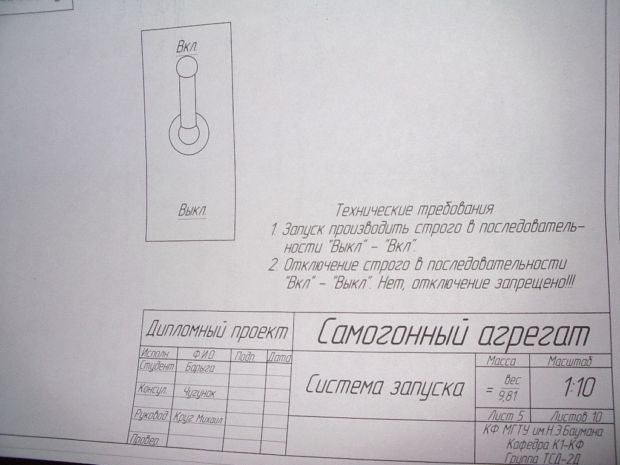 Вкл.
Выкл.
Технические требования
1. Запуск производить строго в последователь-
ности "Выкл" - "Вкл".
2. Отключение строго в последовательности
"Вкл" - "Выкл". Нет, отключение запрещено!!!
Дипломный проект
Самогонный агрегат
Исполн. Ф.И.О. Подп. Дата
Студент Барыга
Консул. Чугунок
Руковод. Круг Михаил
Провер.
Система запуска
Масса Масштаб
= вес
9,81
1:10
Лист 5 Листов 10
КФ МГТУ им.Н.Э.Баумана
Кафедра К1-КФ
Группа ТСД-2Д